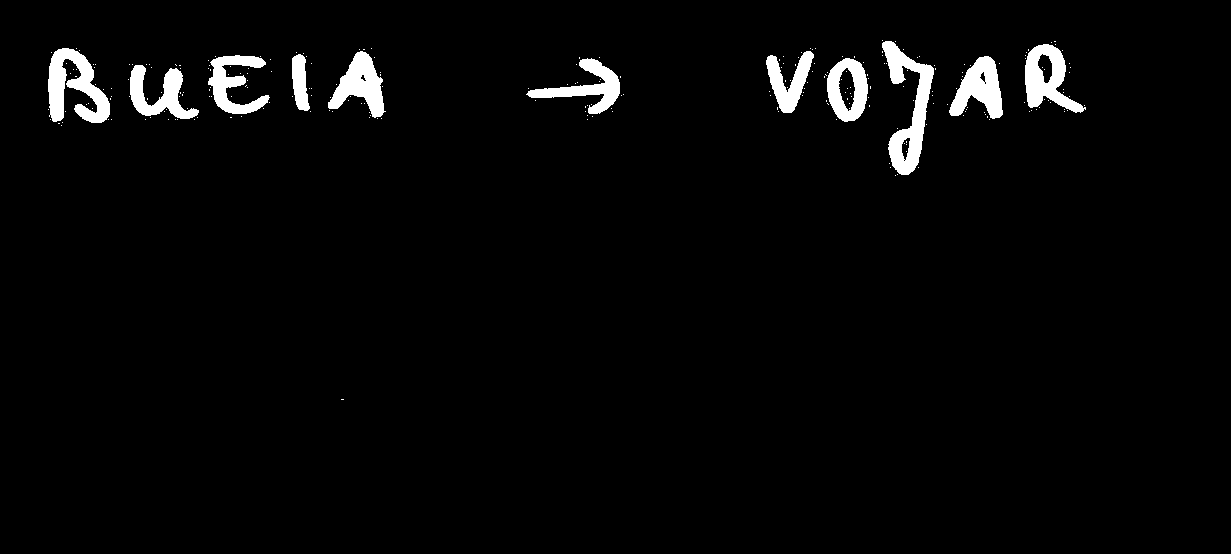 BUEIA → VOJAR